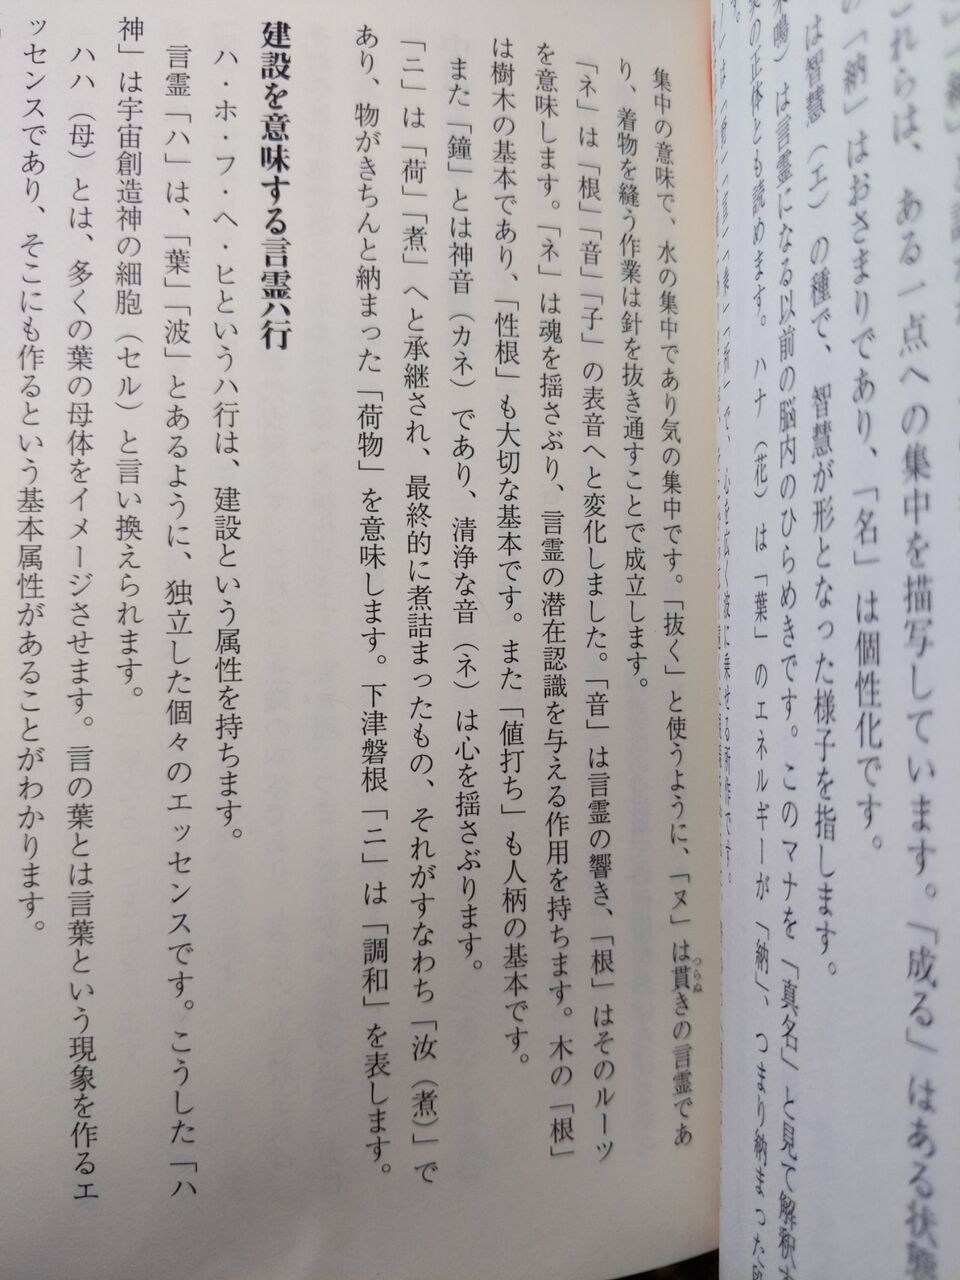 これらは、ある一点への集中を描写しています。「成る」はある状態
「納」はおさまりであり、「名」は個性化です。
は智慧（エ）の種で、智慧が形となった様子を指します。
鳴）は言霊になる以前の脳内のひらめきです。このマナを「真名」と見て解釈す
葉の正体とも読めます。ハナ（花）は「葉」のエネルギーが「納」、つまり納まった
集中の意味で、水の集中であり気の集中です。「抜く」と使うように、「ヌ」は貫きの言霊であ
つらぬ
り、着物を縫う作業は針を抜き通すことで成立します。
「ネ」は「根」「音」「子」の表音へと変化しました。「音」は言霊の響き、「根」はそのルーツ
を意味します。「ネ」は魂を揺さぶり、言霊の潜在認識を与える作用を持ちます。木の「根」
は樹木の基本であり、「性根」も大切な基本です。また「値打ち」も人柄の基本です。
また「鐘」とは神音（カネ）であり、清浄な音（ネ）は心を揺さぶります。
「ニ」は「荷」「煮」へと承継され、最終的に煮詰まったもの、それがすなわち「汝（煮）」で
あり、物がきちんと納まった「荷物」を意味します。下津磐根「ニ」は「調和」を表します。
建設を意味する言霊ハ行
ハ・ホ・フ・ヘ・ヒというハ行は、建設という属性を持ちます。
言霊「ハ」は、「葉」「波」とあるように、独立した個々のエッセンスです。こうした「ハ
神」は宇宙創造神の細胞（セル）と言い換えられます。
ハハ（母）とは、多くの葉の母体をイメージさせます。言の葉とは言葉という現象を作るエ
ッセンスであり、そこにも作るという基本属性があることがわかります。